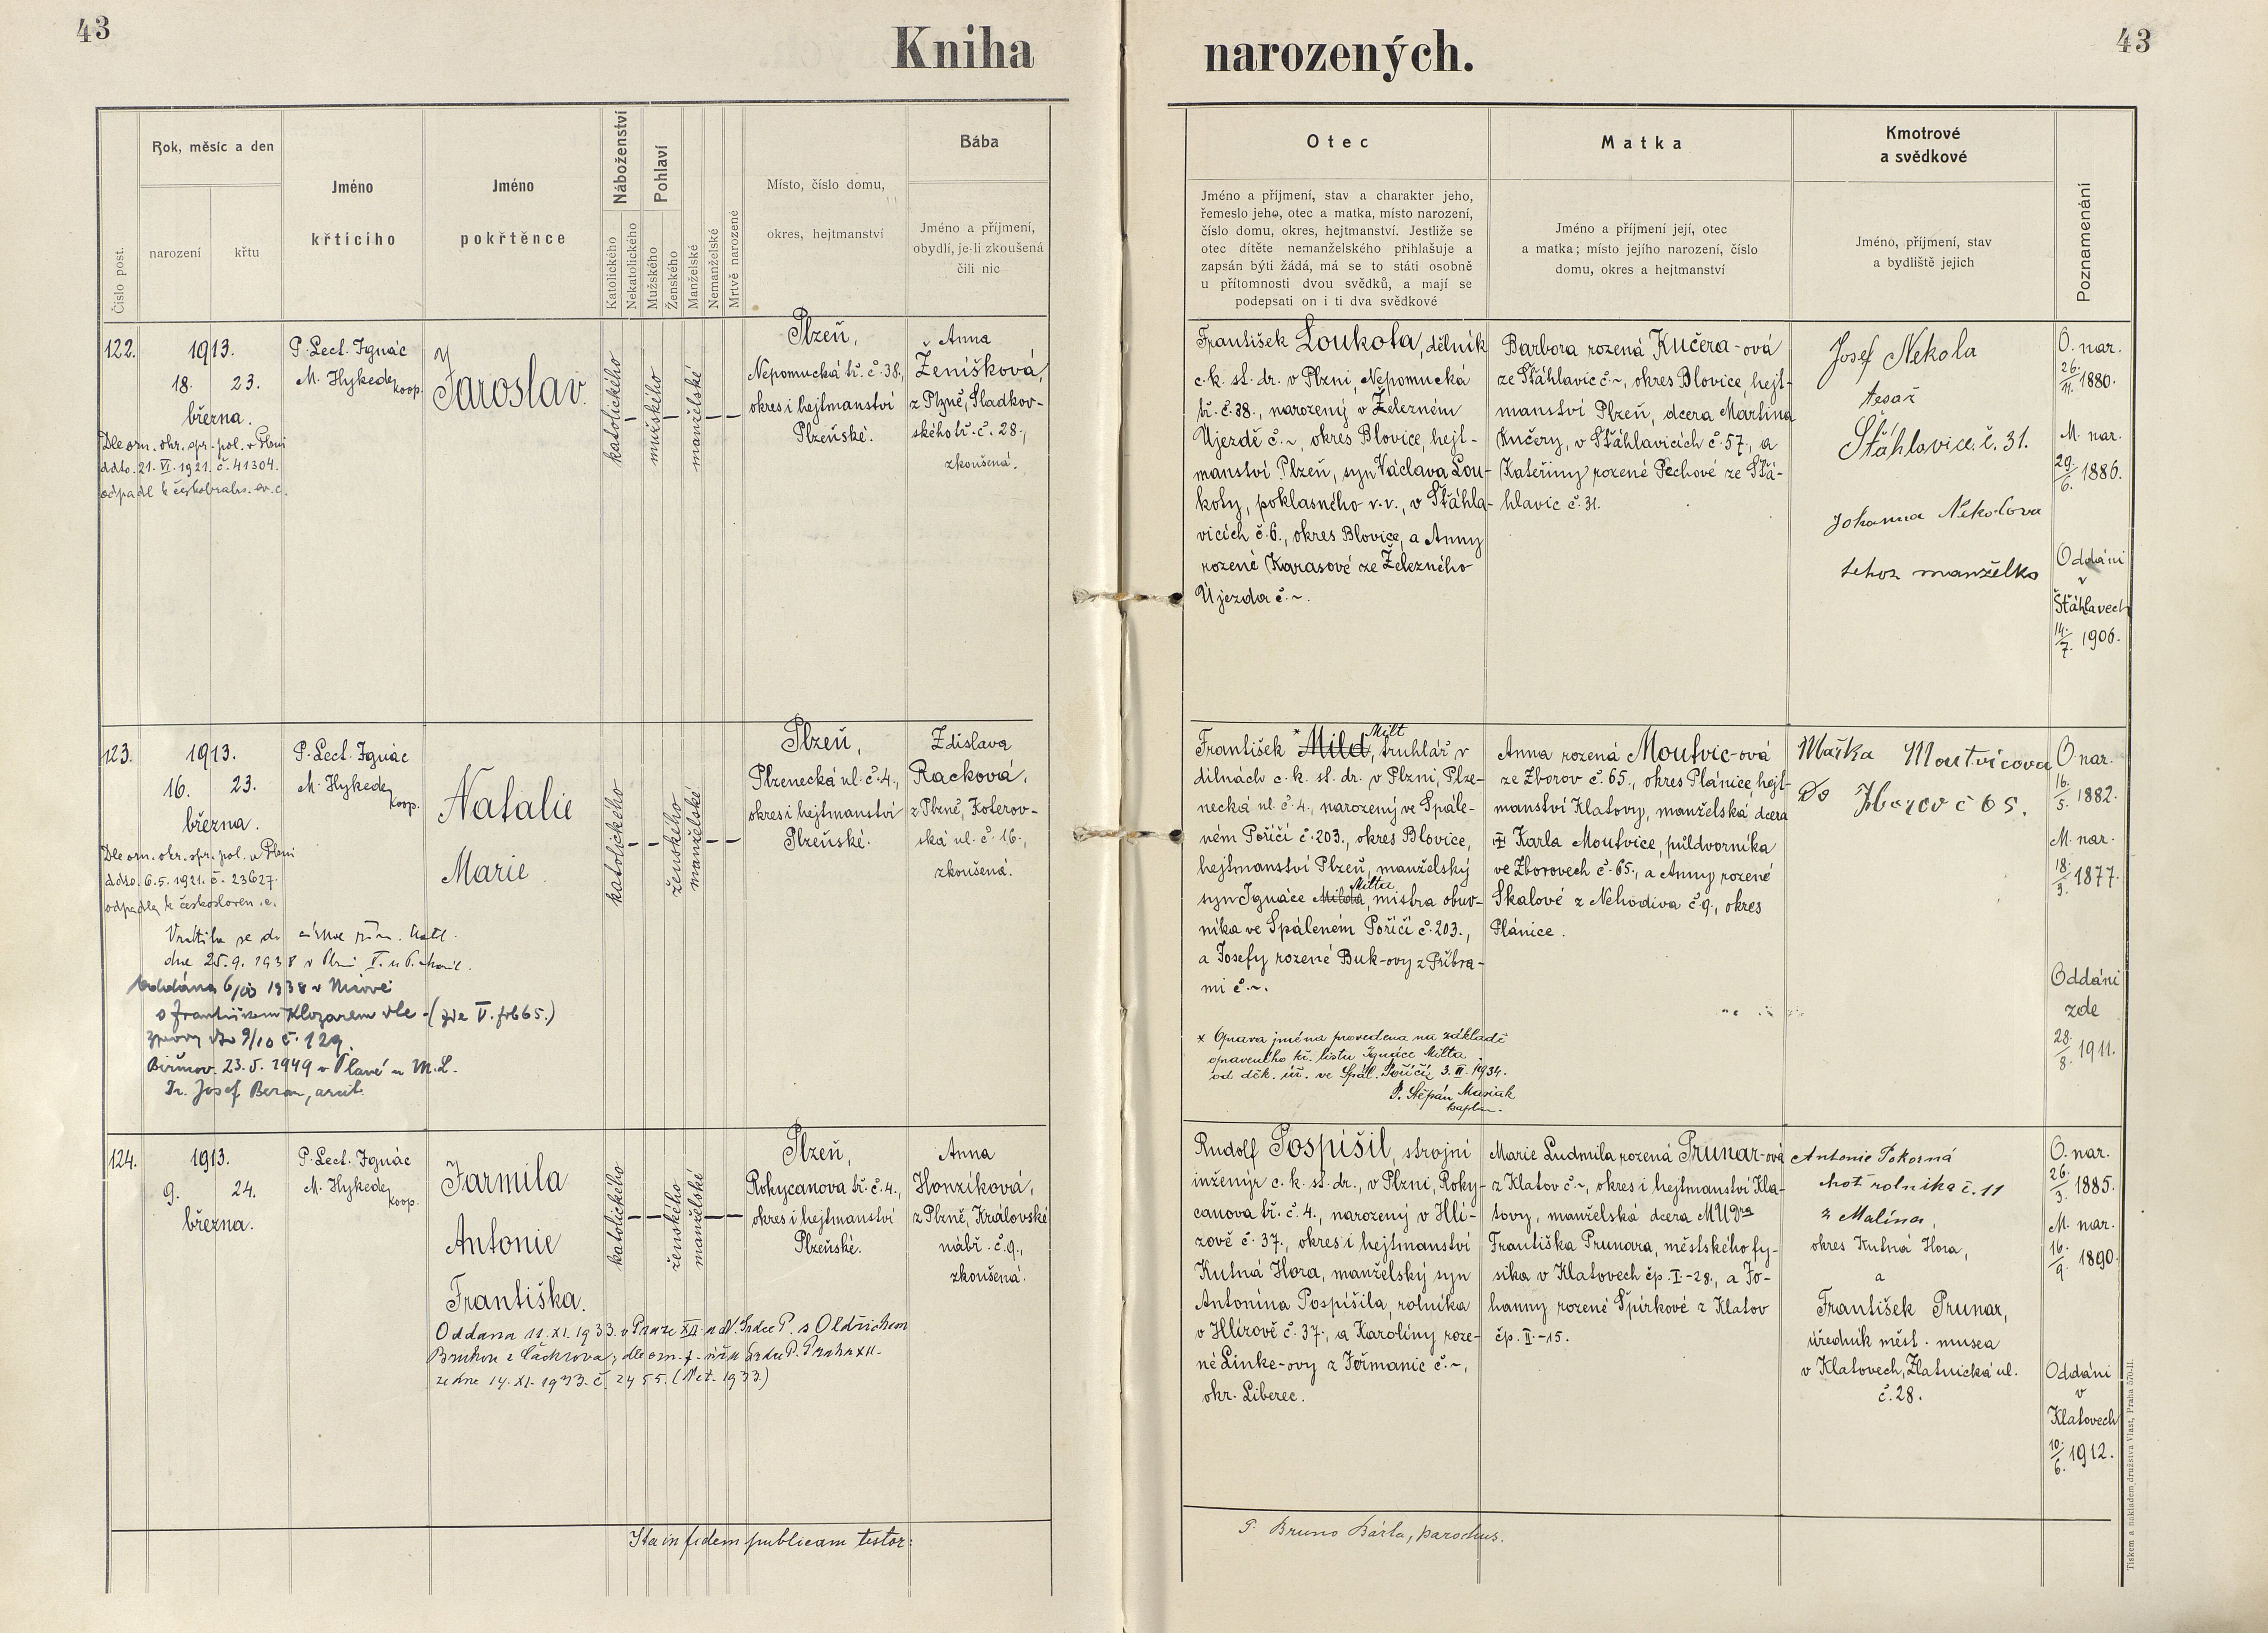 43
Kniha
narozených.
43
Číslo post.
Rok, měsíc a den
narození
křtu
Jméno
křticího
Jméno
pokřtěnce
Náboženství
Katolického
Nekatolického
Pohlaví
Mužského
Ženského
Manželské
Nemanželské
Mrtvě narozené
Místo, číslo domu,
okres, hejtmanství
Bába
Jméno a příjmení,
obydlí, je-li zkoušená
čili nic
Otec
Jméno a příjmení, stav a charakter jeho,
řemeslo jeho, otec a matka, místo narození,
číslo domu, okres, hejtmanství. Jestliže se
otec dítěte nemanželského přihlašuje a
zapsán býti žádá, má se to státi osobně
u přítomnosti dvou svědků, a mají se
podepsati on i ti dva svědkové
Matka
Jméno a příjmení její, otec
a matka; místo jejího narození, číslo
domu, okres a hejtmanství
Kmotrové
a svědkové
Jméno, příjmení, stav
a bydliště jejich
Poznamenání
122.
1913.
18. 23.
března.
Dle ozn. okr. spr. pol. v Plzni
ddto. 21. VI. 1921. č. 41304.
odpadl k českobratrs. ev. c.
P. Lect. Ignác
M. Hykede,
koop.
Jaroslav.
katolického
mužského
manželské
Plzeň,
Nepomucká tř. č. 38.,
okres i hejtmanství
Plzeňské.
Anna
Ženíšková,
z Plzně, Sladkov-
ského tř. č. 28.,
zkoušená.
František Loukota, dělník
c. k. st. dr. v Plzni, Nepomucká
tř. č. 38., narozený v Železném
Újezdě č. ~, okres Blovice, hejt-
manství Plzeň, syn Václava Lou-
koty, poklasného v. v., v Šťáhla-
vicích č. 6., okres Blovice, a Anny
rozené Karasové ze Železného
Újezda č. ~.
Barbora rozená Kučera-ová
ze Šťáhlavic č. ~, okres Blovice, hejt-
manství Plzeň, dcera Martina
Kučery, v Šťáhlavicích č. 57., a
Kateřiny rozené Pechové ze Šťá-
hlavic č. 31.
Josef Nekola
tesař
Šťáhlavice. č. 31.
Johanna Nekolova
tehoz manželka
O. nar.
26./11. 1880.
M. nar.
29./6. 1886.
Oddáni
v
Šťáhlavech
14./7. 1906.
123.
1913.
16. 23.
března.
Dle ozn. okr. spr. pol. v Plzni
ddto. 6. 5. 1921. č. 23627.
odpadla k českosloven. c.
Vrátila se do církve řím. katol.
dne 25. 9. 1938 v Plzni
Oddána 1938
s Františkem Klozarem dle (zde V. fol 65.)
zprávy 9/10 č. 129.
Biřmov. 23. 5. 1949 v Plané u M. L.
Dr. Josef Beran, arcib.
P. Lect. Ignác
M. Hykede,
koop.
Natalie
Marie
katolického
ženského
manželské
Plzeň,
Plzenecká ul. č. 4.,
okres i hejtmanství
Plzeňské.
Zdislava
Racková,
z Plzně, Koterov-
ská ul. č. 16.,
zkoušená.
Milt
František * Mild, truhlář v
dílnách c. k. st. dr. v Plzni, Plze-
necká ul. č. 4., narozený ve Spále-
ném Poříčí č. 203., okres Blovice,
hejtmanství Plzeň, manželský
Milta
syn Ignáce Milda, mistra obuv-
níka ve Spáleném Poříčí č. 203.,
a Josefy rozené Buk-ovy z Příbra-
mi č. ~.
* Oprava jména provedena na základě
opraveného kř. listu Ignáce Milta
od děk. úř. ve Spál. Poříčí 3. II. 1934.
P. Štěpán Masiak
kaplan.
Anna rozená Moutvic-ová
ze Zborov č. 65., okres Plánice, hejt-
manství Klatovy, manželská dcera
Karla Moutvice, půldvorníka
ve Zborovech č. 65., a Anny rozené
Skalové z Nehodiva č. 9., okres
Plánice.
Mařka Moutvicova
Zborov č 65.
O. nar.
16./5. 1882.
M. nar.
18./3. 1877.
Oddáni
zde
28./8. 1911.
124.
1913.
9. 24.
března.
P. Lect. Ignác
M. Hykede,
koop.
Jarmila
Antonie
Františka.
Oddana 11. XI. 1933. v Praze XII. u N. Srdce P. s Oldřichem
dle ozn. f. úřu Srdce P. Praha XII.
ze dne 14. XI. 1933. č. 2455.
katolického
ženského
manželské
Plzeň,
Rokycanova tř. č. 4.,
okres i hejtmanství
Plzeňské.
Anna
Honzíková,
z Plzně, Královské
nábř. č. 9.,
zkoušená.
Rudolf Pospíšil, strojní
inženýr c. k. st. dr., v Plzni, Roky-
canova tř. č. 4., narozený v Hlí-
zově č. 37., okres i hejtmanství
Kutná Hora, manželský syn
Antonína Pospíšila, rolníka
v Hlízově č. 37., a Karolíny roze-
né Linke-ovy z Jeřmanic č. ~,
okr. Liberec.
Marie Ludmila rozená Prunar-ová
z Klatov č. ~, okres i hejtmanství Kla-
tovy, manželská dcera MUDra
Františka Prunara, městského fy-
sika v Klatovech čp. I.-28., a Jo-
hanny rozené Špirkové z Klatov
čp. II.-15.
Antonie Pokorná
choť rolníka č. 11
z Malína,
okres Kutná Hora,
a
František Prunar,
úředník měst. musea
v Klatovech, Zlatnická ul.
č. 28.
O. nar.
26./3. 1885.
M. nar.
16./9. 1890.
Oddáni
v
Klatovech
10./6. 1912.
Ita in fidem publicam testor:
P. Bruno Bárta, parochus.
Tiskem a nákladem družstva Vlast, Praha 570-II.